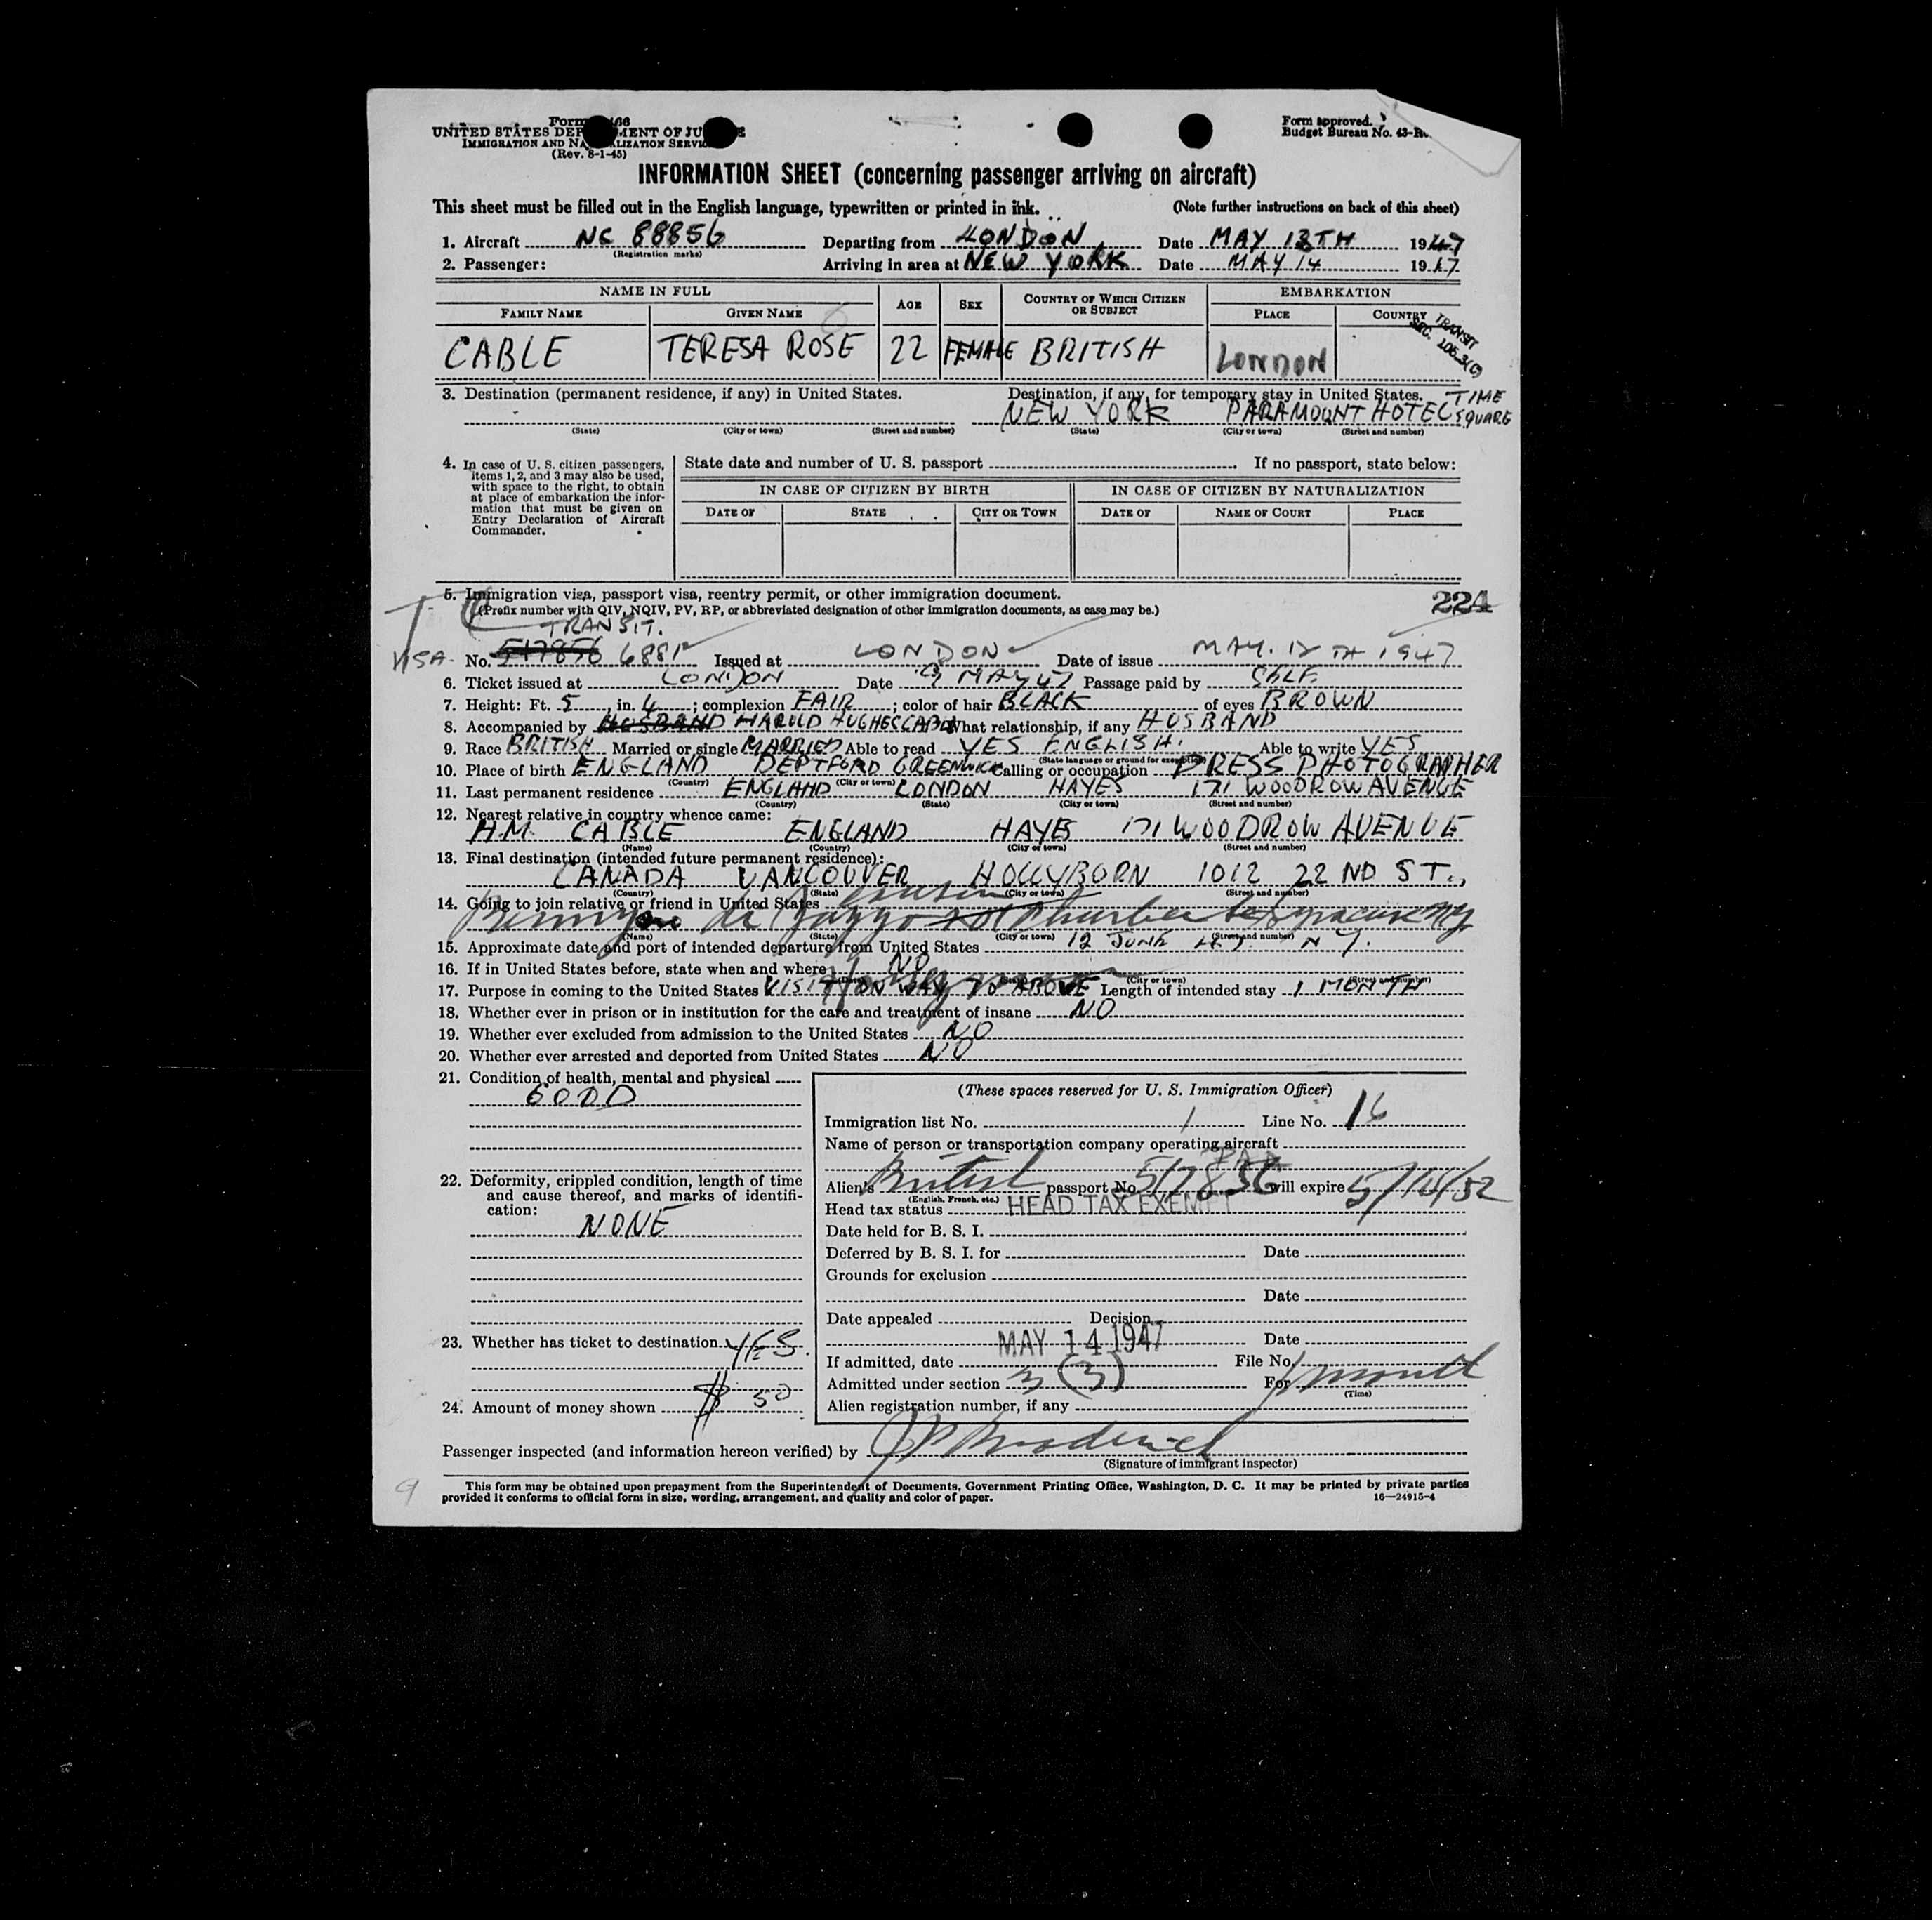 Form 166
UNITED STATES DEPARTMENT OF JUSTICE
IMMIGRATION AND NATURALIZATION SERVICE
(Rev. 8-1-45)
Form approved.
Budget Bureau No. 43-R
INFORMATION SHEET (concerning passenger arriving on aircraft)
This sheet must be filled out in the English language, typewritten or printed in ink. (Note further instructions on back of this sheet)
1. Aircraft NC 88856 Departing from LONDON Date MAY 13TH 1947
(Registration marks)
2. Passenger: Arriving in area at NEW YORK Date MAY 14 1947
NAME IN FULL AGE SEX COUNTRY OF WHICH CITIZEN OR SUBJECT EMBARKATION
FAMILY NAME GIVEN NAME PLACE COUNTRY
TRANSIT
SEC. 105.3(c)
CABLE TERESA ROSE 22 FEMALE BRITISH LONDON
3. Destination (permanent residence, if any) in United States. Destination, if any, for temporary stay in United States. TIME
NEW YORK PARAMOUNT HOTEL SQUARE
(State) (City or town) (Street and number) (State) (City or town) (Street and number)
4. In case of U. S. citizen passengers, items 1, 2, and 3 may also be used, with space to the right, to obtain at place of embarkation the information that must be given on Entry Declaration of Aircraft Commander.
State date and number of U. S. passport If no passport, state below:
IN CASE OF CITIZEN BY BIRTH IN CASE OF CITIZEN BY NATURALIZATION
DATE OF STATE CITY OR TOWN DATE OF NAME OF COURT PLACE
5. Immigration visa, passport visa, reentry permit, or other immigration document.
(Prefix number with QIV, NQIV, PV, RP, or abbreviated designation of other immigration documents, as case may be.)
224
TRANSIT.
VISA. No. 517856 Issued at LONDON Date of issue MAY. 12 TH 1947
6. Ticket issued at LONDON Date 9 MAY 47 Passage paid by SELF
7. Height: Ft. 5, in. 4; complexion FAIR; color of hair BLACK of eyes BROWN
8. Accompanied by HUSBAND HAROLD HUGHES CABLE What relationship, if any HUSBAND
9. Race BRITISH Married or single MARRIED Able to read YES ENGLISH. Able to write YES
(State language or ground for exemption)
10. Place of birth ENGLAND DEPTFORD GREENWICH Calling or occupation PRESS PHOTOGRAPHER
(Country) (City or town)
11. Last permanent residence ENGLAND LONDON HAYES 171 WOODROW AVENUE
(Country) (State) (City or town) (Street and number)
12. Nearest relative in country whence came:
H.M. CABLE ENGLAND HAYES 171 WOODROW AVENUE
(Name) (Country) (City or town) (Street and number)
13. Final destination (intended future permanent residence):
CANADA VANCOUVER HOLLYBORN 1012 22 ND ST.,
(Country) (State) (City or town) (Street and number)
14. Going to join relative or friend in United States cousin
Syracuse NY
(Name) (State) (City or town) (Street and number)
15. Approximate date and port of intended departure from United States 12 JUNE 47. N Y.
16. If in United States before, state when and where NO
(City or town) (Street and number)
17. Purpose in coming to the United States VISIT ON WAY TO ABOVE Length of intended stay 1 MONTH
18. Whether ever in prison or in institution for the care and treatment of insane NO
19. Whether ever excluded from admission to the United States NO
20. Whether ever arrested and deported from United States NO
21. Condition of health, mental and physical
GOOD
22. Deformity, crippled condition, length of time and cause thereof, and marks of identification:
NONE
23. Whether has ticket to destination YES.
24. Amount of money shown $ 50
(These spaces reserved for U. S. Immigration Officer)
Immigration list No. 1 Line No. 16
Name of person or transportation company operating aircraft
PAA
Alien's British passport No. 517856 will expire 5/ /52
(English, French, etc.)
Head tax status HEAD TAX EXEMPT
Date held for B. S. I.
Deferred by B. S. I. for Date
Grounds for exclusion
Date
Date appealed Decision
Date
MAY 14 1947
If admitted, date File No.
Admitted under section 3 (3) For 1 month
(Time)
Alien registration number, if any
Passenger inspected (and information hereon verified) by
(Signature of immigrant inspector)
9
This form may be obtained upon prepayment from the Superintendent of Documents, Government Printing Office, Washington, D. C. It may be printed by private parties
provided it conforms to official form in size, wording, arrangement, and quality and color of paper. 16—24915-4